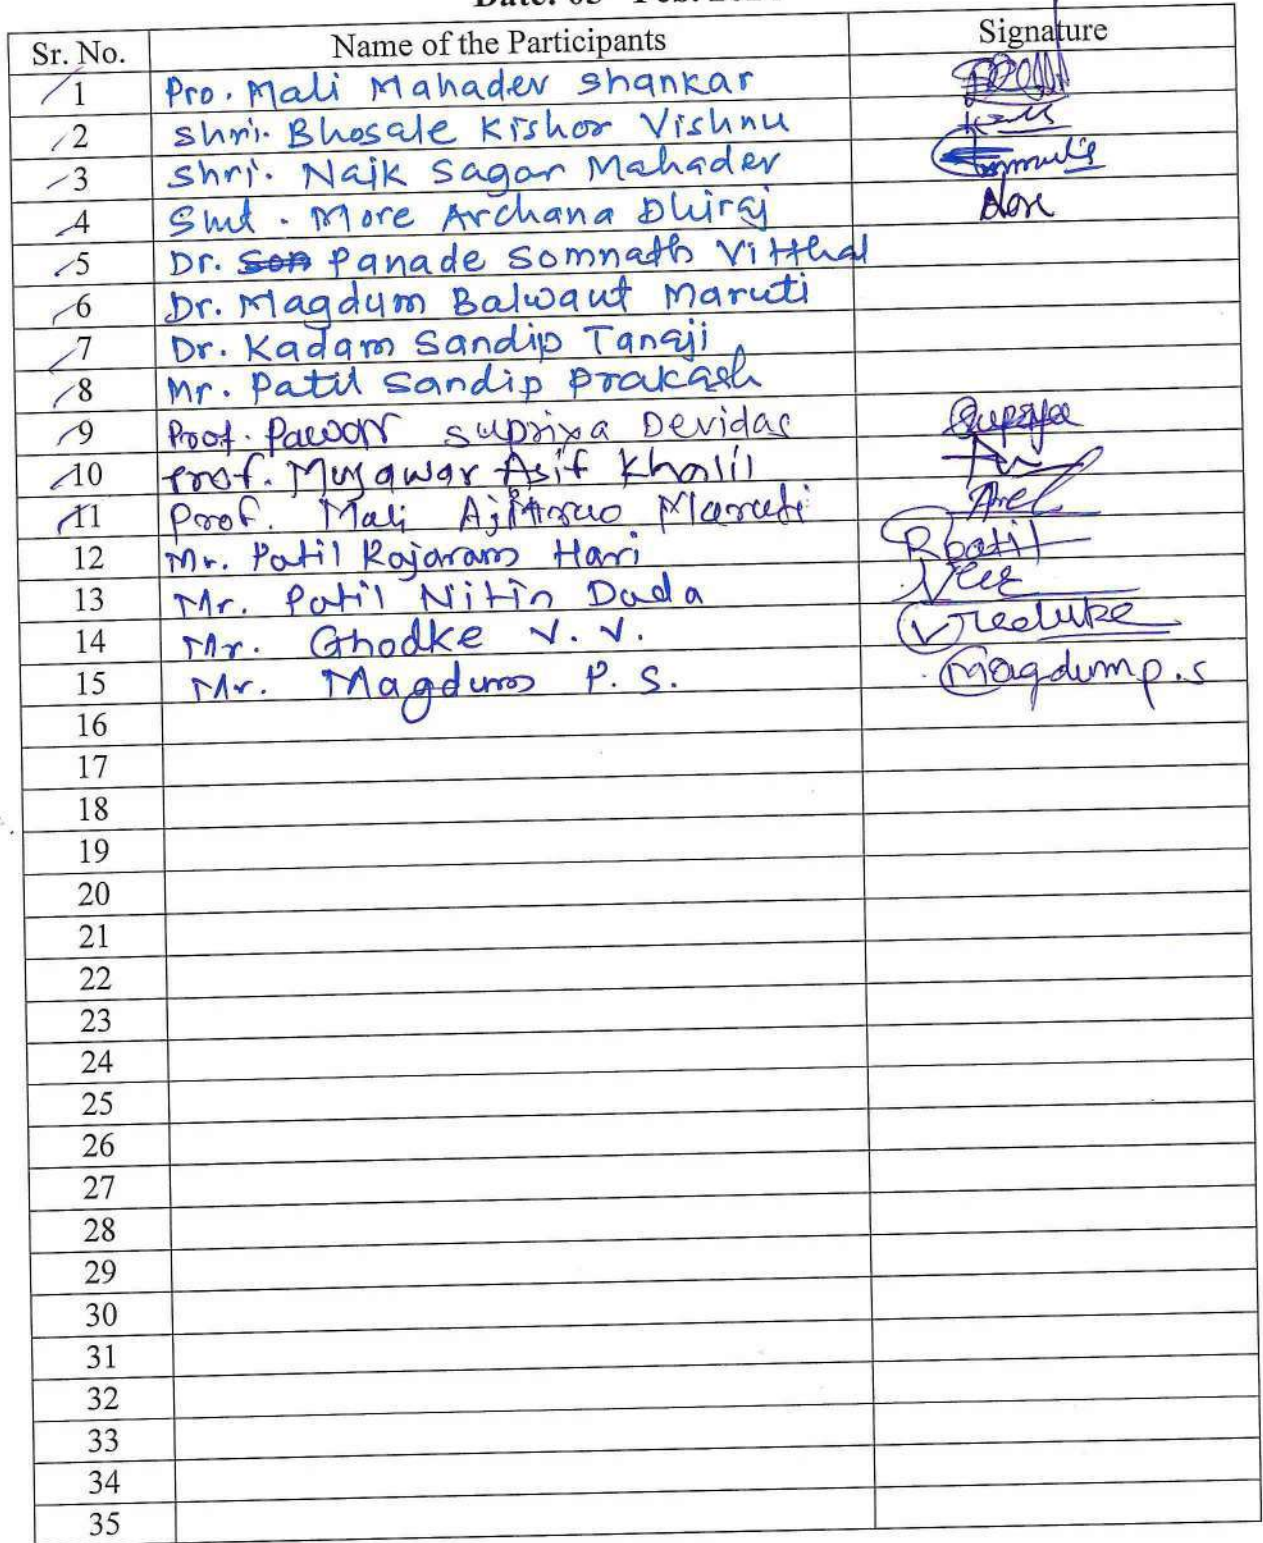 Sr. No. Name of the Participants Signature
1 Pro. Mali Mahadev Shankar
2 Shri. Bhosale Kishor Vishnu
3 Shri. Naik Sagar Mahadev
4 Smt. More Archana Dhiraj
5 Dr. Panade Somnath Vitthal
6 Dr. Magdum Balwant Maruti
7 Dr. Kadam Sandip Tanaji
8 Mr. Patil Sandip Prakash
9 Prof. Pawar Supriya Devidas Supriya
10 Prof. Mujawar Asif Khalil
11 Prof. Mali Ajitrao Maruti
12 Mr. Patil Rajaram Hari Rpatil
13 Mr. Patil Nitin Dada
14 Mr. Ghodke V. V.
15 Mr. Magdum P. S. Magdum p.s
16
17
18
19
20
21
22
23
24
25
26
27
28
29
30
31
32
33
34
35